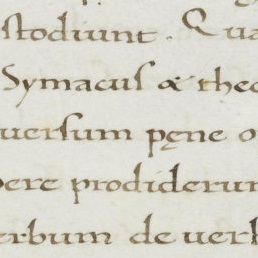 stodiunt. Qua
Symacus & theo
uersum pęne o
pere prodiderun
erbum de uerb